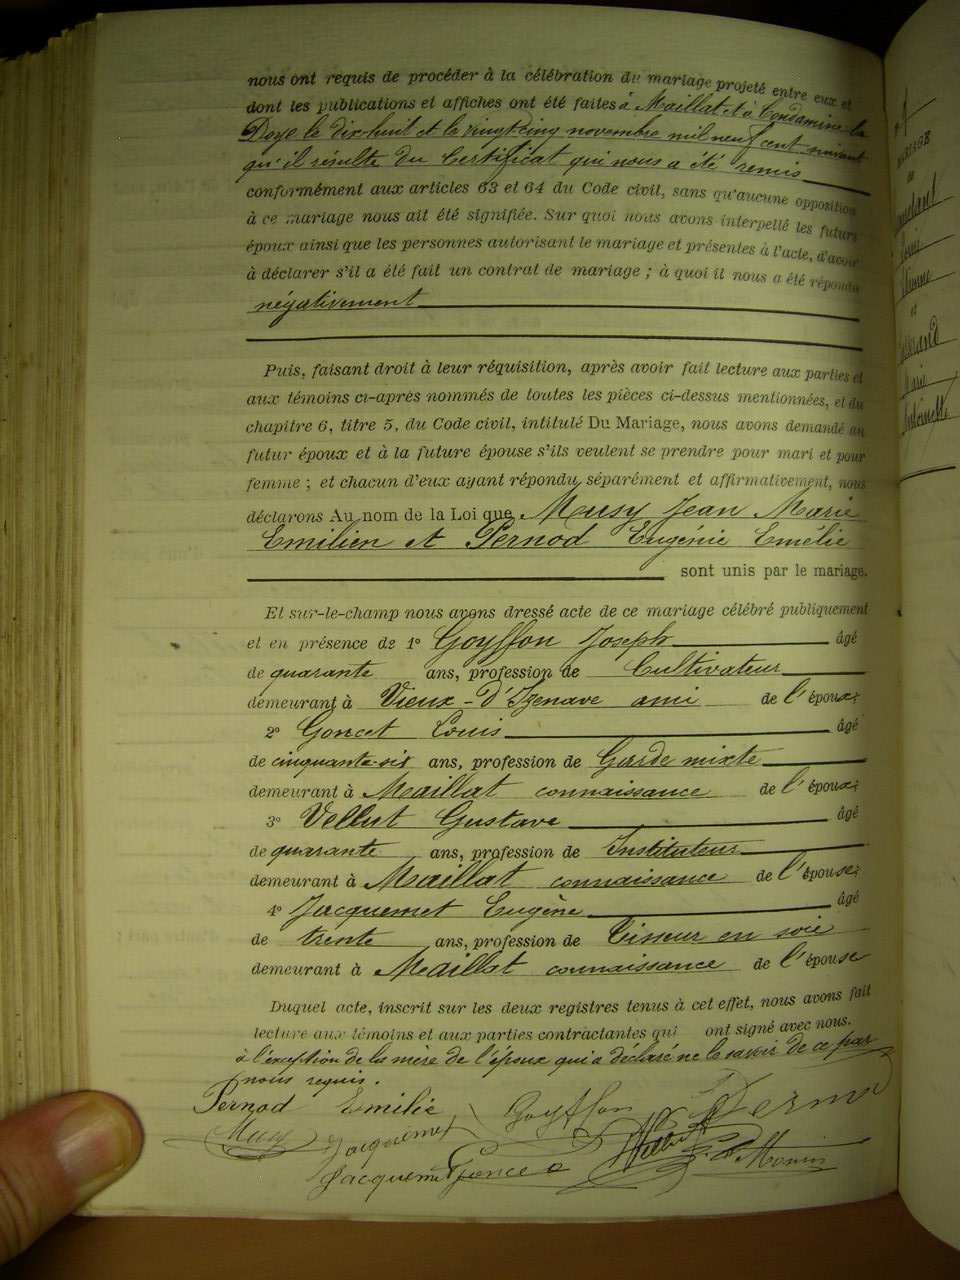 nous ont requis de procéder à la célébration du mariage projeté entre eux et
dont les publications et affiches ont été faites à Maillat et à Condamine-la
Doye le dix-huit et le vingt-cinq novembre mil neuf cent suivant
qu'il résulte du Certificat qui nous a été remis
conformément aux articles 63 et 64 du Code civil, sans qu'aucune opposition
à ce mariage nous ait été signifiée. Sur quoi nous avons interpellé les futurs
époux ainsi que les personnes autorisant le mariage et présentes à l'acte, d'avoir
à déclarer s'il a été fait un contrat de mariage ; à quoi il nous a été répondu
négativement
Puis, faisant droit à leur réquisition, après avoir fait lecture aux parties et
aux témoins ci-après nommés de toutes les pièces ci-dessus mentionnées, et du
chapitre 6, titre 5, du Code civil, intitulé Du Mariage, nous avons demandé au
futur époux et à la future épouse s'ils veulent se prendre pour mari et pour
femme ; et chacun d'eux ayant répondu séparément et affirmativement, nous
déclarons Au nom de la Loi que Musy Jean Marie
Emilien et Pernod Eugénie Emélie
sont unis par le mariage.
Et sur-le-champ nous avons dressé acte de ce mariage célébré publiquement
et en présence de 1º Goyffon Joseph âgé
de quarante ans, profession de Cultivateur
demeurant à Vieux-d'Izenave ami de l'époux;
2º Goncet Louis âgé
de cinquante-six ans, profession de Garde mixte
demeurant à Maillat connaissance de l'époux;
3º Vellut Gustave âgé
de quarante ans, profession de Instituteur
demeurant à Maillat connaissance de l'épouse;
4º Jacquemet Eugène âgé
de trente ans, profession de Tisseur en soie
demeurant à Maillat connaissance de l'épouse
Duquel acte, inscrit sur les deux registres tenus à cet effet, nous avons fait
lecture aux témoins et aux parties contractantes qui ont signé avec nous.
à l'exception de la mère de l'époux qui a déclaré ne le savoir de ce par
nous requis.
Pernod Emilie Goyffon
Musy Jacquemet
Jacquemet
Marie
Antoinette